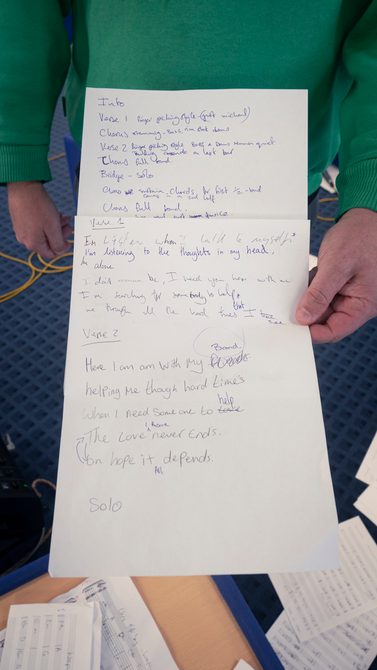 Intro
Verse 1 finger picking style - (just michael)
Chorus strumming - Bass, rim shot drums
Verse 2 finger picking style Bass & Drums remain quiet
Building towards a last bar
Chorus full band
Bridge - Solo
Chorus sustain chords, for first 1/2 - band
comes in a 2nd half
Chorus full band
twice
Verse 1
Listen when I talk to myself
I'm listening to the thoughts in my head,
alone
I need you here with me
I'm searching for somebody to help,
me through all the hard times I that
see
Verse 2
Band
Here I am am with my friends
helping me though hard times
help
when I need someone to
have
The Love never Ends.
On hope it depends.
All
Solo